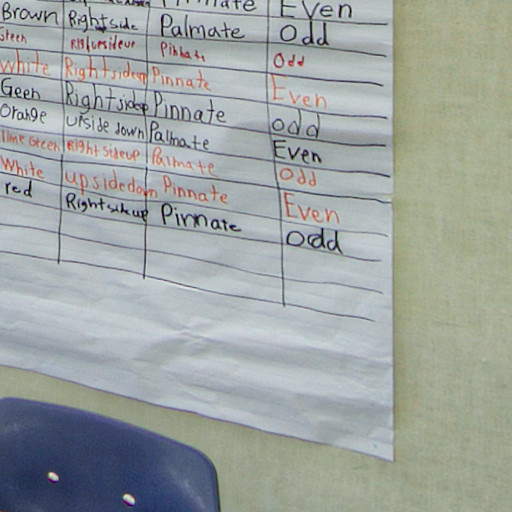 Even
Brown Rightside Palmate Odd
Pinnate Odd
white Rightsideup Pinnate Even
Geen Rightsideup Pinnate odd
Orange upside down Palmate Even
lime Green Rightsideup Palmate Odd
White upsidedown Pinnate Even
red Rightsideup Pinnate Odd